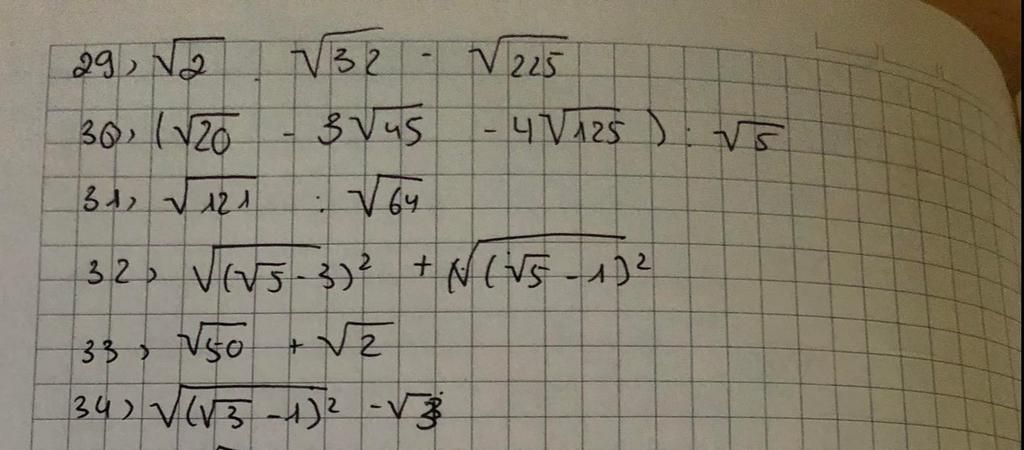 29, √2 . √32 - √225
30, (√20 - 3√45 - 4√125) : √5
31, √121 : √64
32, √(√5 - 3)² + √(√5 - 1)²
33, √50 + √2
34, √(√3 - 1)² - √3